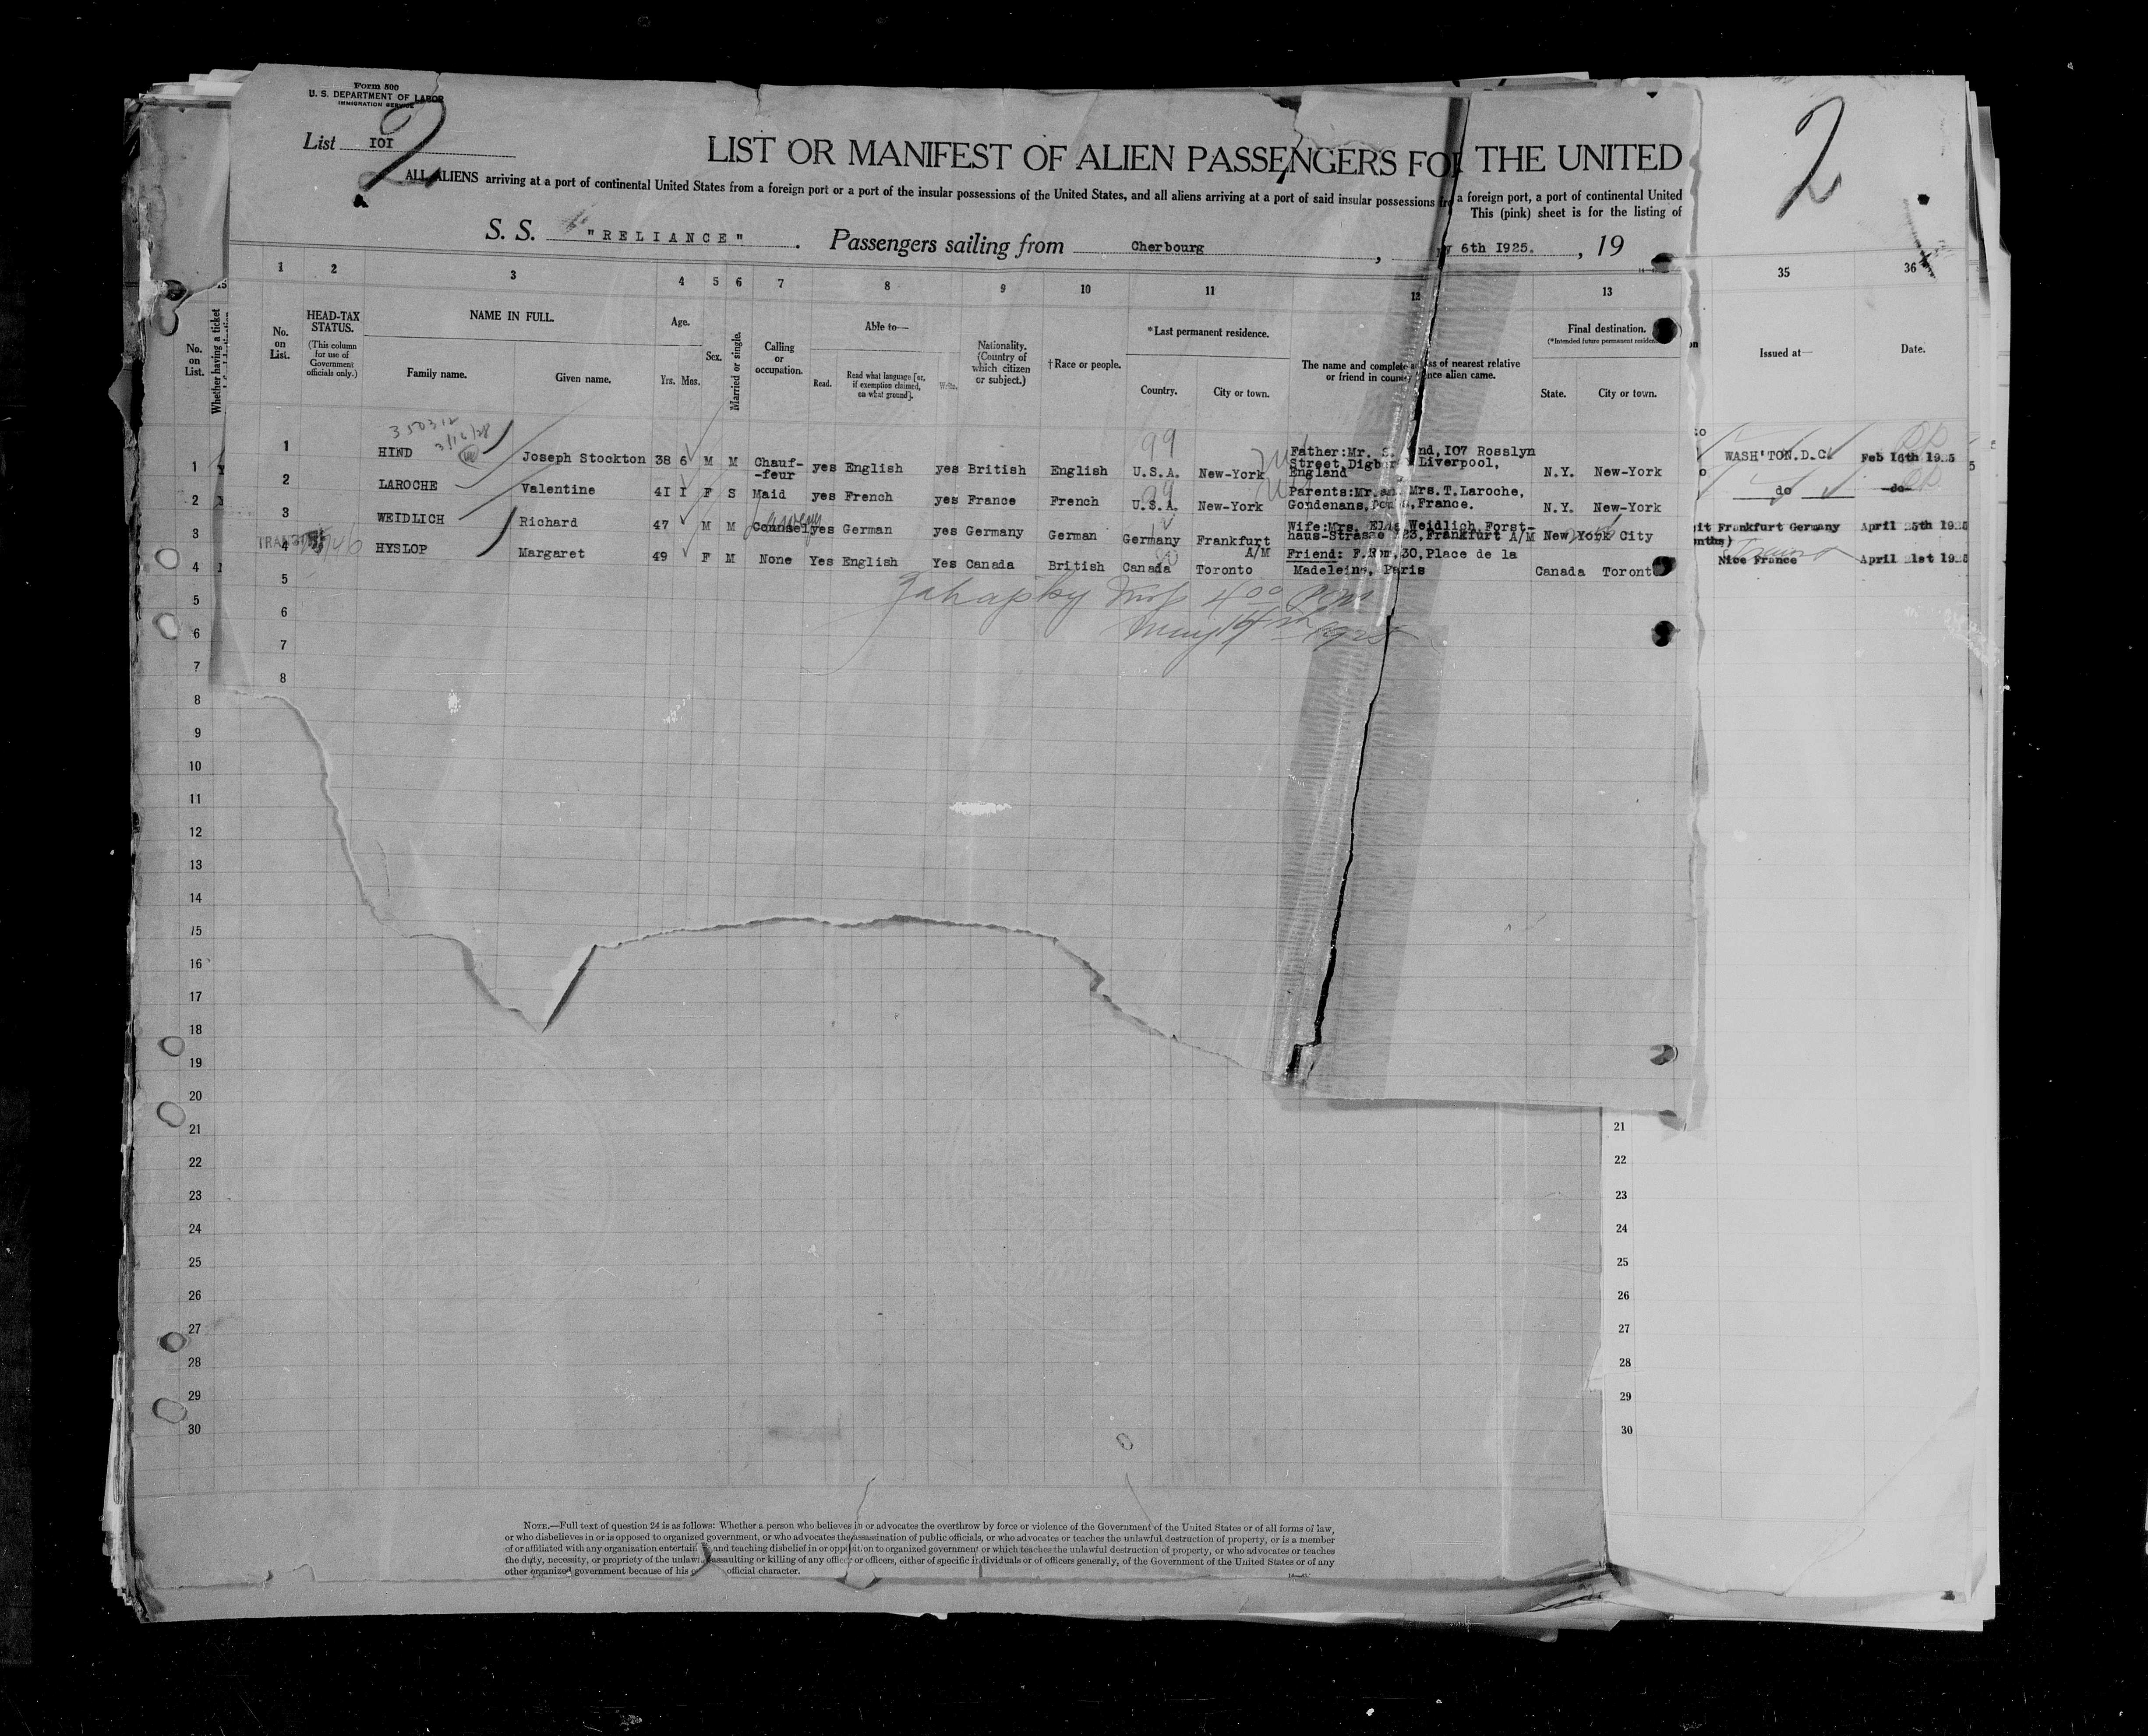 Form 500
U. S. DEPARTMENT OF LABOR
IMMIGRATION SERVICE
2
2
List IOI
LIST OR MANIFEST OF ALIEN PASSENGERS FOR THE UNITED
ALL ALIENS arriving at a port of continental United States from a foreign port or a port of the insular possessions of the United States, and all aliens arriving at a port of said insular possessions a foreign port, a port of continental United
This (pink) sheet is for the listing of
S. S. "RELIANCE" . Passengers sailing from Cherbourg , 6th I925. , 19
1 2 3 4 5 6 7 8 9 10 11 12 13 35 36
No. on List.
Whether having a ticket
No. on List.
HEAD-TAX STATUS.
(This column for use of Government officials only.)
NAME IN FULL.
Family name. Given name.
Age.
Yrs. Mos.
Sex.
Married or single.
Calling or occupation.
Able to—
Read. Read what language [or, if exemption claimed, on what ground]. Write.
Nationality. (Country of which citizen or subject.)
†Race or people.
*Last permanent residence.
Country. City or town.
The name and complete of nearest relative or friend in alien came.
Final destination.
(*Intended future permanent
State. City or town.
Issued at— Date.
350312
3/12/28
1 HIND Joseph Stockton 38 6 M M Chauf- -feur yes English yes British English 99 U.S.A. New-York Father:Mr. S. nd,IO7 Rosslyn Street, Liverpool, England N.Y. New-York WASH'TON.D.C. Feb 16th 1925
2 LAROCHE Valentine 4I I F S Maid yes French yes France French 99 U.S.A. New-York Parents:Mr. Mrs.T.Laroche, Gondenans, France. N.Y. New-York do do
3 WEIDLICH Richard 47 M M Counsel yes German yes Germany German Germany Frankfurt A/M Wife:Mrs. Weidlich Forst- haus-Strasse Frankfurt A/M New York City Frankfurt Germany April 25th 1925
TRANSIT
4 HYSLOP Margaret 49 F M None Yes English Yes Canada British Canada Toronto Friend: 30,Place de la Madeleine, Paris Canada Toront Nice France April 21st 1925
4 00
May 14th 1925
5
6
7
8
1
2
3
4
5
6
7
8
9
10
11
12
13
14
15
16
17
18
19
20
21 21
22 22
23 23
24 24
25 25
26 26
27 27
28 28
29 29
30 30
NOTE.—Full text of question 24 is as follows: Whether a person who believes in or advocates the overthrow by force or violence of the Government of the United States or of all forms of law,
or who disbelieves in or is opposed to organized government, or who advocates the assassination of public officials, or who advocates or teaches the unlawful destruction of property, or is a member
of or affiliated with any organization entertain and teaching disbelief in or opposition to organized government or which teaches the unlawful destruction of property, or who advocates or teaches
the duty, necessity, or propriety of the unlawful assaulting or killing of any officer or officers, either of specific individuals or of officers generally, of the Government of the United States or of any
other organized government because of his official character.